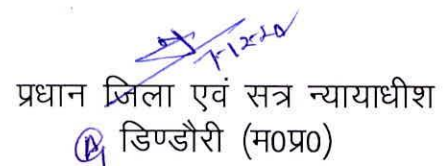 7-12-20
प्रधान जिला एवं सत्र न्यायाधीश
डिण्डौरी (म0प्र0)